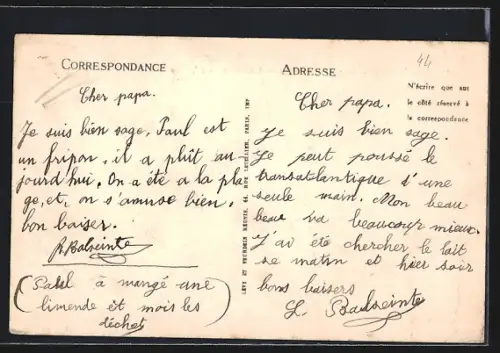 44
CORRESPONDANCE
Cher papa.
Je suis bien sage, Paul est
un fripon, il a plût au-
jourd'hui. On a été a la pla
ge, et, on s'amuse bien.
bon baiser.
R. Balseinte
(Paul à mangé une
limende et mois les
déchet)
LÉVY ET NEURDEIN RÉUNIS, 44, RUE LETELLIER, PARIS, IMP
ADRESSE
N'écrire que sur
le côté réservé à
la correspondance
Cher papa.
Je suis bien sage.
Je peut poussé le
transatlantique d'une
seule main. Mon beau
beau va beaucoup mieux.
J'ai été chercher le lait
se matin et hier soir
bons baisers
L. Balseinte